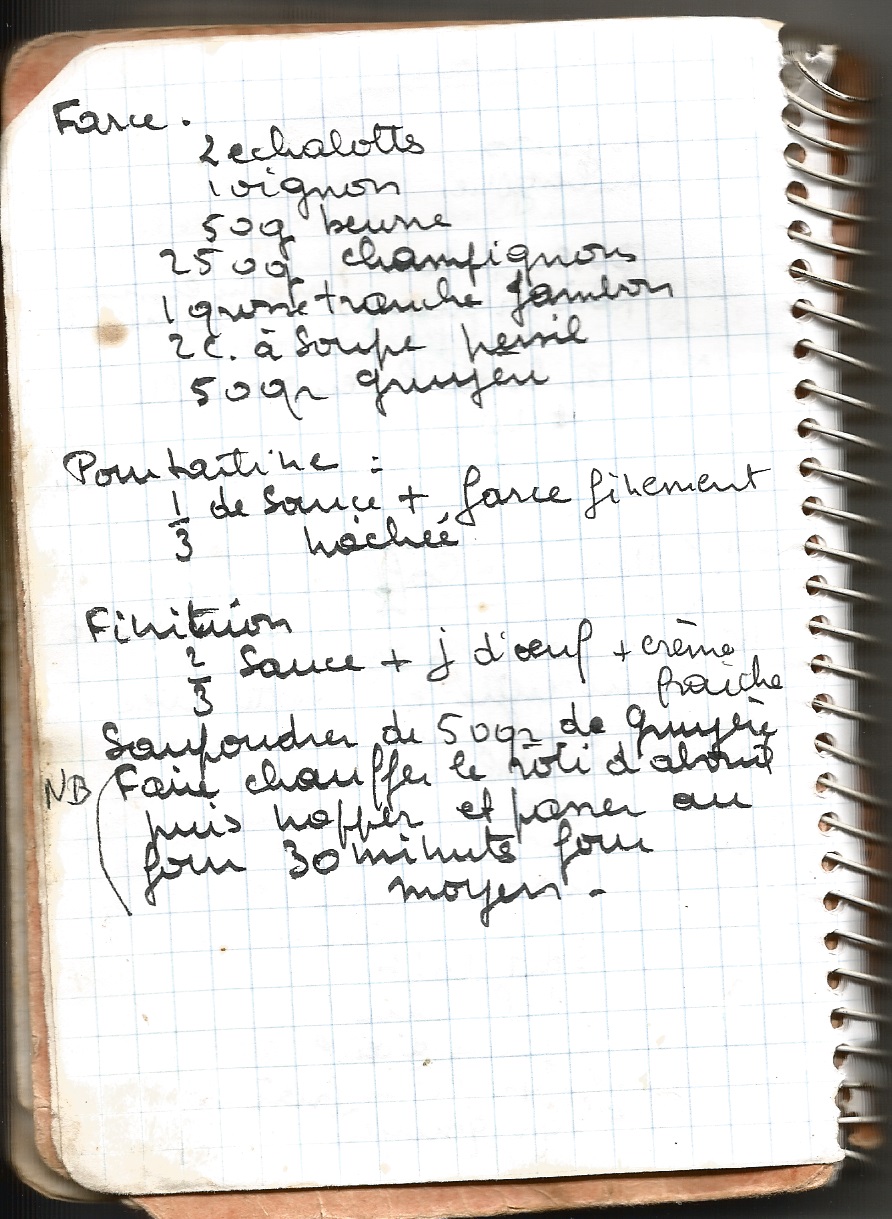 Farce.
2 echalotts
1 oignon
50g beurre
250g champignons
1 grosse tranche jambon
2 c. à soupe persil
50gr gruyere
Pour tartine :
1/3 de sauce + farce finement
hâchée
Finition
2/3 sauce + j d'oeuf + crème
fraîche
Saupoudrer de 50gr de gruyère
NB (Faire chauffer le rôti d'abord
puis napper et passer au
four 30 minuts four
moyen.